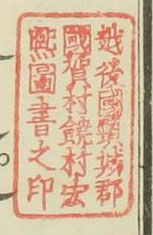 越後國頸城郡
國賀村饒村宏
熙圖書之印